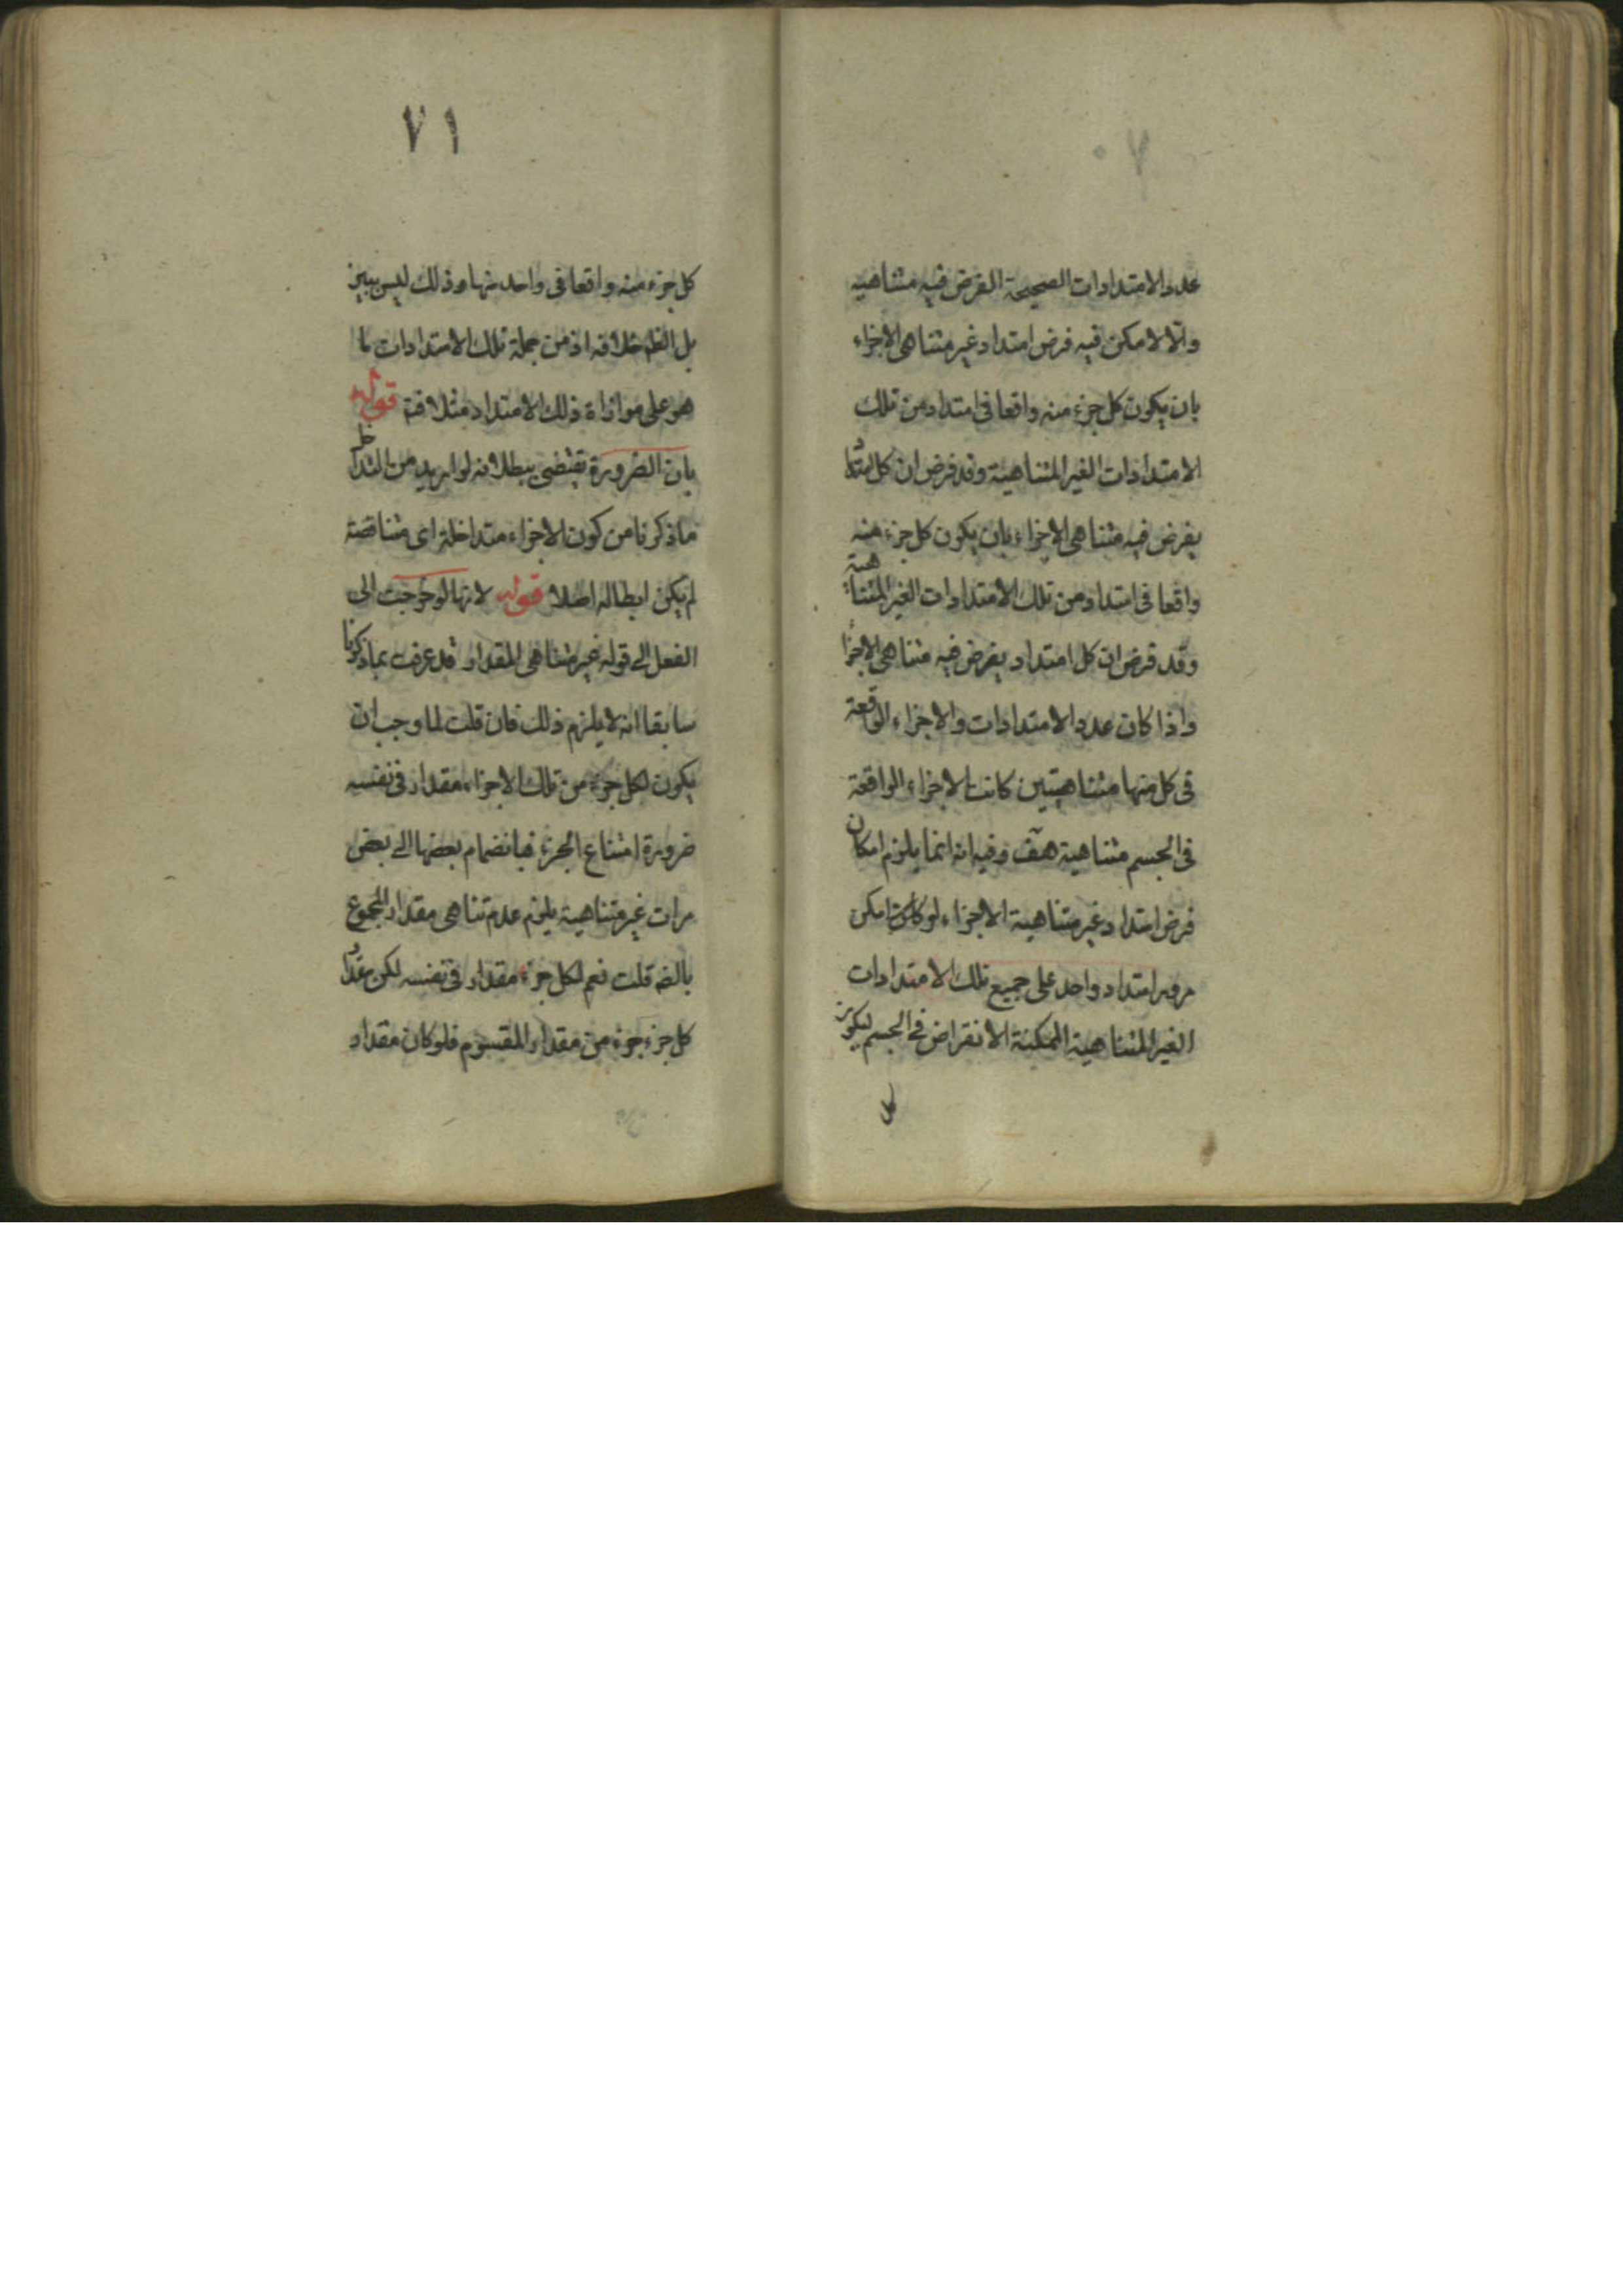 ٧٠
عدد الامتدادات الصحيحة الفرض فيه متناهية
والّا لامكن فيه فرض امتداد غير متناهى الاجزاء
بان يكون كل جزء منه واقعا فى امتداد من تلك
الامتدادات الغير المتناهية وقد فرض ان كل امتداد
يفرض فيه متناهى الاجزاء بان يكون كل جزء منه
واقعا فى امتداد من تلك الامتدادات الغير المتناهية
وقد فرض ان كل امتداد يفرض فيه متناهى الاجزاء
واذا كان عدد الامتدادات والاجزاء الواقعة
فى كل منها متناهيتين كانت الاجزاء الواقعة
فى الجسم متناهية هف وفيه انه انما يلزم امكان
فرض امتداد غير متناهية الاجزاء لو كان امكن
مرور امتداد واحد على جميع تلك الامتدادات
الغير المتناهية الممكنة الانفراض فى الجسم ليكون
كل
٧١
كل جزء منه واقعا فى واحد منها وذلك ليس ببين
بل الظ خلافه اذ من جملة تلك الامتدادات ما
هو على موازاة ذلك الامتداد مثلا فتـ قوله
بان الضرورة تقتضى ببطلانه لو اريد من التداخل
ما ذكرنا من كون الاجزاء متداخلة اى متناقصة
لم يكن ابطاله اصلا قوله لانها لو خرجت الى
الفعل الى قوله غير متناهى المقدار قد عرفت بما ذكرنا
سابقا انه لا يلزم ذلك فان قلت لما وجب ان
يكون لكل جزء من تلك الاجزاء مقدار فى نفسه
ضرورة امتناع الجزء فبانضمام بعضها الى بعض
مرات غير متناهية يلزم عدم تناهى مقدار المجموع
بالضه قلت نعم لكل جزء مقدار فى نفسه لكن مقدار
كل جزء جزء من مقدار المقسوم فلو كان مقدار